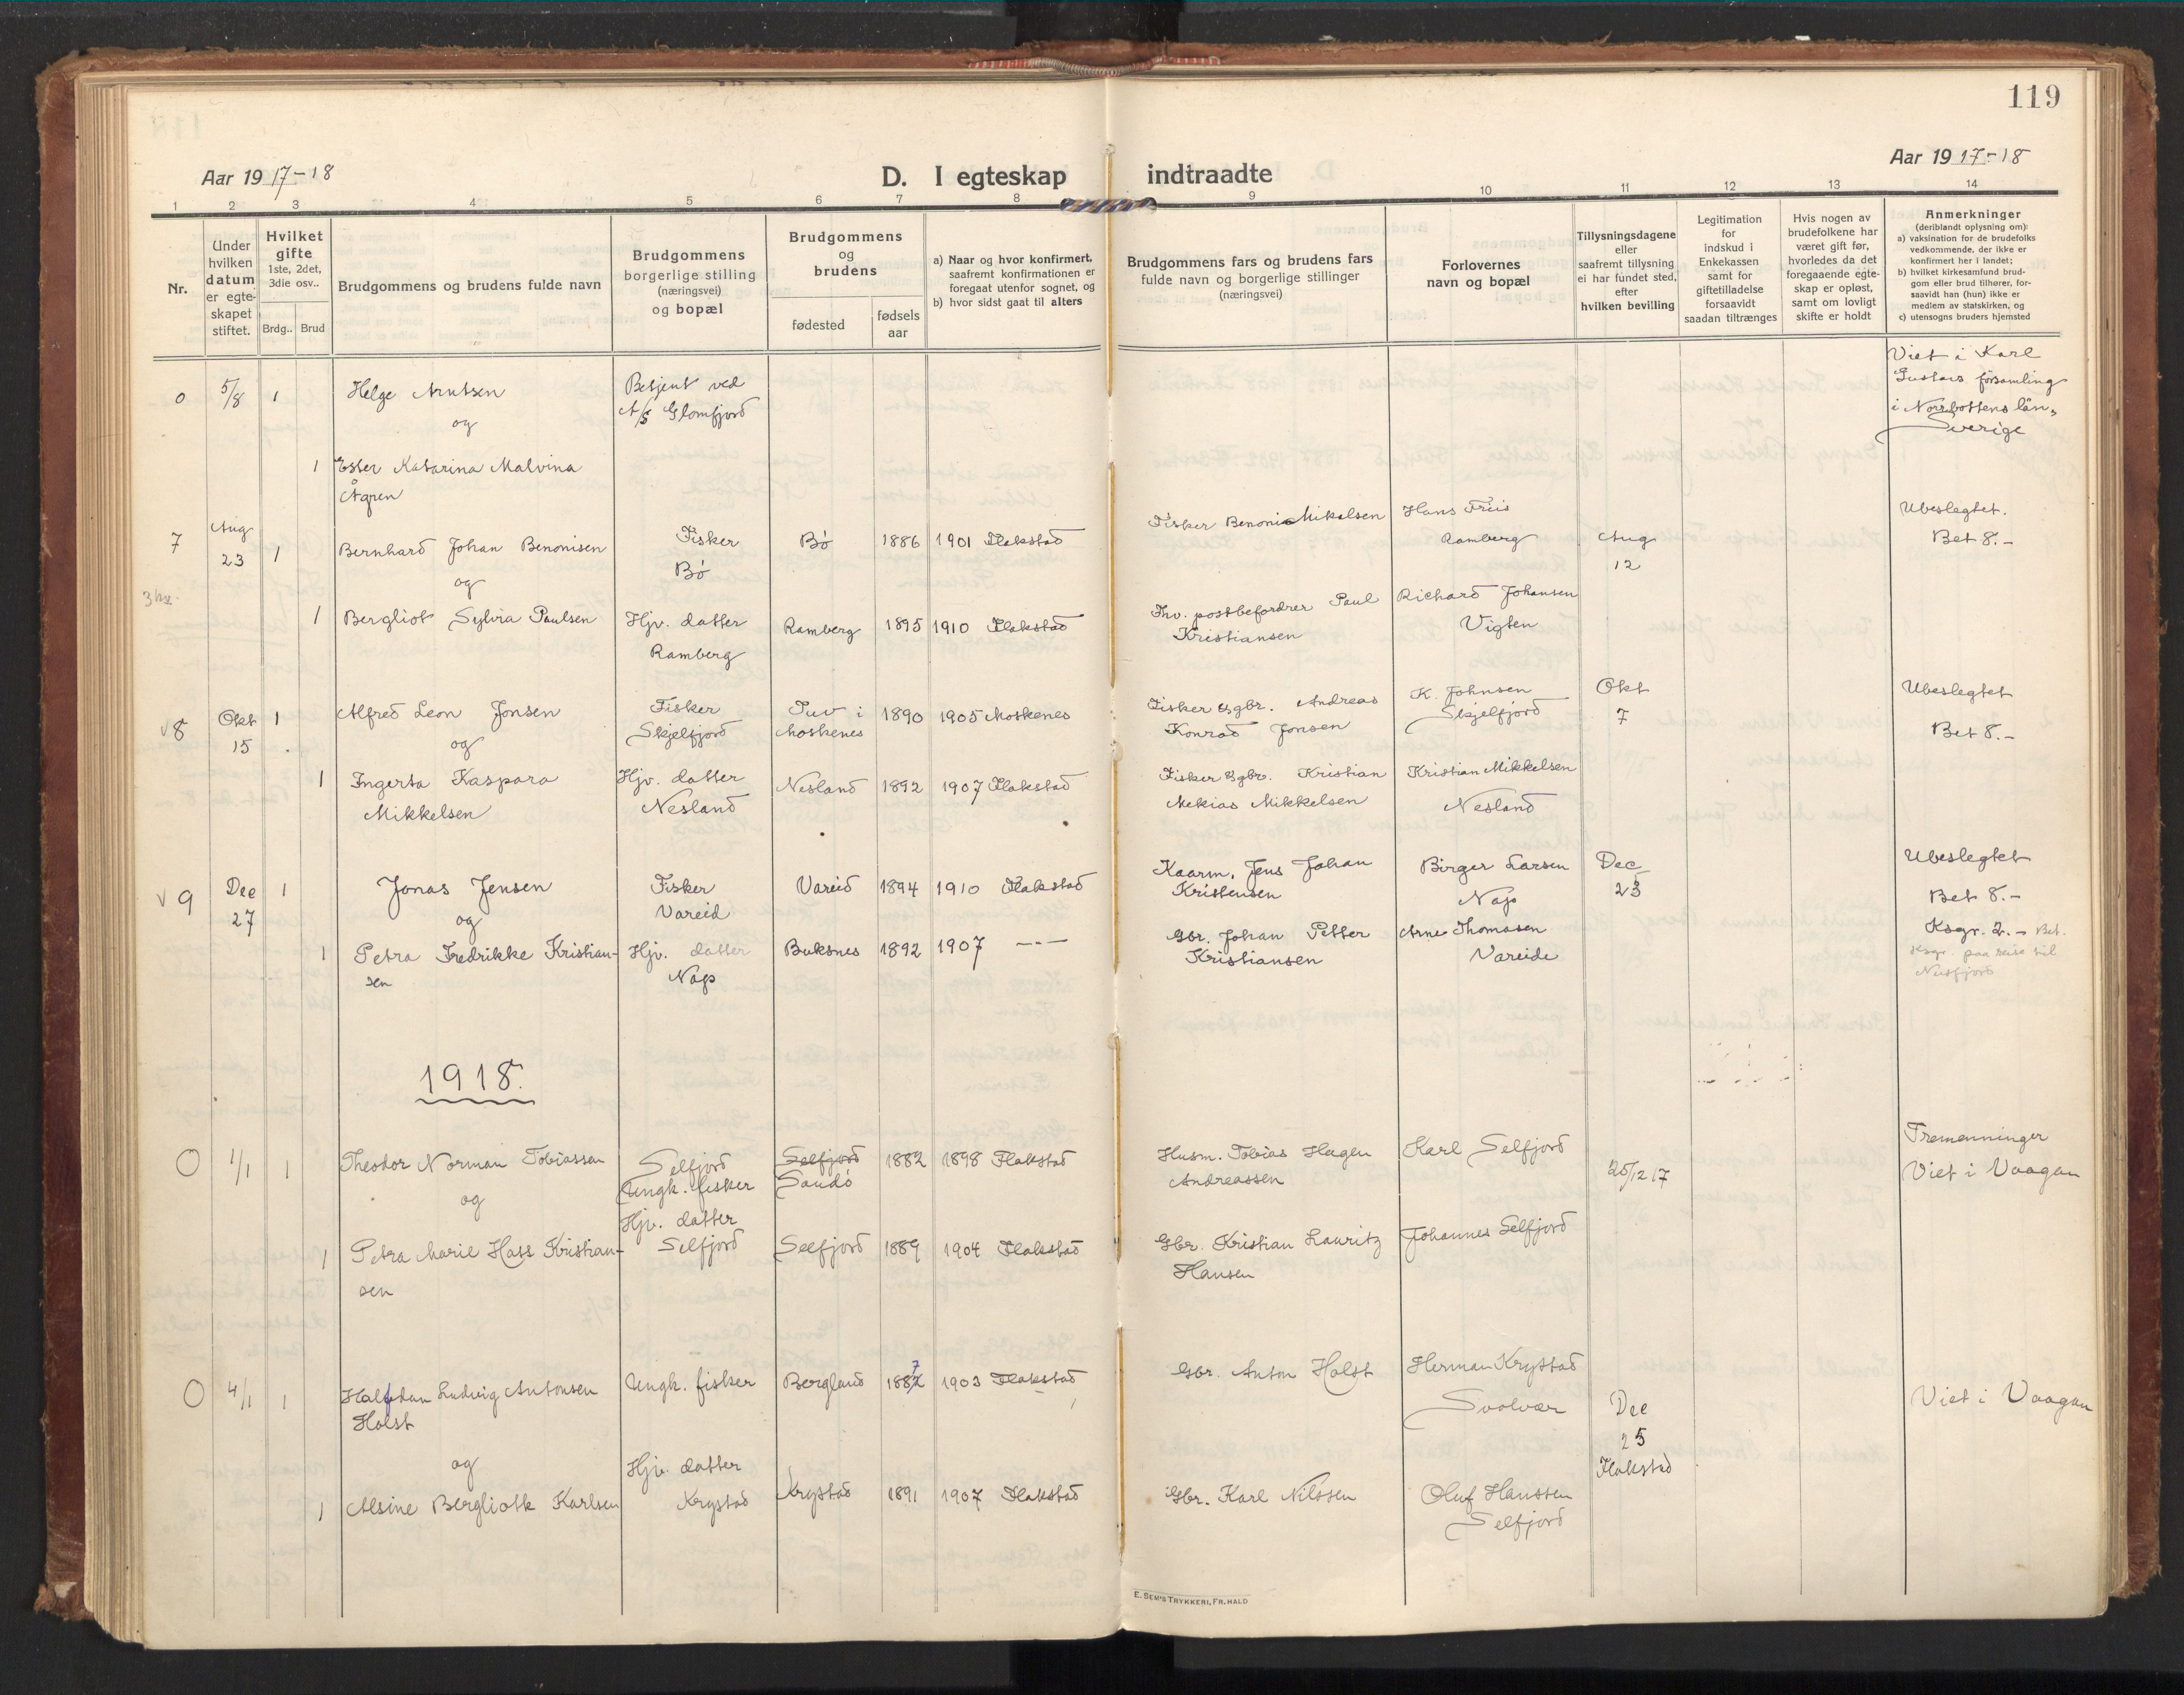 119
Aar 1917-18
D. I egteskap indtraadte
Aar 1917-18
1 2 3 4 5 6 7 8 9 10 11 12 13 14
Nr.
Under
hvilken
datum
er egte-
skapet
stiftet.
Hvilket
gifte
1ste, 2det,
3die osv..
Brdg.. Brud
Brudgommens og brudens fulde navn
Brudgommens
borgerlige stilling
(næringsvei)
og bopæl
Brudgommens
og
brudens
fødested
fødsels
aar
a) Naar og hvor konfirmert,
saafremt konfirmationen er
foregaat utenfor sognet, og
b) hvor sidst gaat til alters
Brudgommens fars og brudens fars
fulde navn og borgerlige stillinger
(næringsvei)
Forlovernes
navn og bopæl
Tillysningsdagene
eller
saafremt tillysning
ei har fundet sted,
efter
hvilken bevilling
Legitimation
for
indskud i
Enkekassen
samt for
giftetilladelse
forsaavidt
saadan tiltrænges
Hvis nogen av
brudefolkene har
været gift før,
hvorledes da det
foregaaende egte-
skap er opløst,
samt om lovligt
skifte er holdt
Anmerkninger
(deriblandt oplysning om):
a) vaksination for de brudefolks
vedkommende, der ikke er
konfirmert her i landet;
b) hvilket kirkesamfund brud-
gom eller brud tilhører, for-
saavidt han (hun) ikke er
medlem av statskirken, og
c) utensogns bruders hjemsted
0 5/8 1 Helge Arntsen
og
Betjent ved
A/S Glomfjord
Viet i Karl
Gustavs församling
i Norrbottens län,
Sverige
1 Ester Katarina Malvina
Ågren
7 Aug
23 1 Bernhard Johan Benonisen
og
Fisker
Bø
Bø 1886 1901 Flakstad
Fisker Benoni Mikalsen
Hans Friis
Ramberg
Aug
12
Ubeslegtet.
Bet 8.-
1 Bergliot Sylvia Paulsen
Hjv. datter
Ramberg
Ramberg 1895 1910 Flakstad
Fhv. postbefordrer Paul
Kristiansen
Richard Johansen
Vigten
v8 Okt
15 1 Alfred Leon Jonsen
og
Fisker
Skjelfjord
Tuv i
Moskenes
1890 1905 Moskenes
Fisker & gbr. Andreas
Konrad Jonsen
K. Johnsen
Skjelfjord
Okt
7
Ubeslegtet
Bet 8.-
1 Ingerta Kaspara
Mikkelsen
Hjv. datter
Nesland
Nesland 1892 1907 Flakstad
Fisker & gbr. Kristian
Mekias Mikkelsen
Kristian Mikkelsen
Nesland
v9 Dec
27 1 Jonas Jensen
og
Fisker
Vareid
Vareid 1894 1910 Flakstad
Kaarm. Jens Johan
Kristensen
Birger Larsen
Nap
Dec
23
Ubeslegtet
Bet 8.-
Ksgr. 2.- Bet.
Ksgr. paa reise til
Nusfjord
1 Petra Fredrikke Kristian-
sen
Hjv. datter
Nap
Buksnes 1892 1907 -"-
Gbr. Johan Petter
Kristiansen
Arne Thomasen
Vareide
1918.
0 1/1 1 Theodor Norman Tobiassen
og
Selfjord
Ungk. fisker
Selfjord
Sandø
1882 1898 Flakstad
Husm. Tobias Hagen
Andreassen
Karl Selfjord
25/12 17
Tremenninger
Viet i Vaagan
1 Petra Marie Hass Kristian-
sen
Hjv. datter
Selfjord
Selfjord 1889 1904 Flakstad
Gbr. Kristian Lauritz
Hansen
Johannes Selfjord
0 4/1 1 Halfdan Ludvig Antonsen
Holst
og
Ungk. fisker
Bergland 1887 1903 Flakstad
Gbr. Anton Holst
Herman Krystad
Svolvær
Dec
25
Flakstad
Viet i Vaagan
1 Alsine Bergliotk Karlsen
Hjv. datter
Krystad
Krystad 1891 1907 Flakstad
Gbr. Karl Nilssen
Oluf Hanssen
Selfjord
E. SEM'S TRYKKERI, FR. HALD